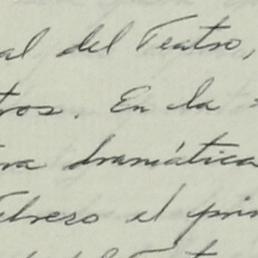 al del Teatro,
tros. En la
ra dramática
Febrero el prim